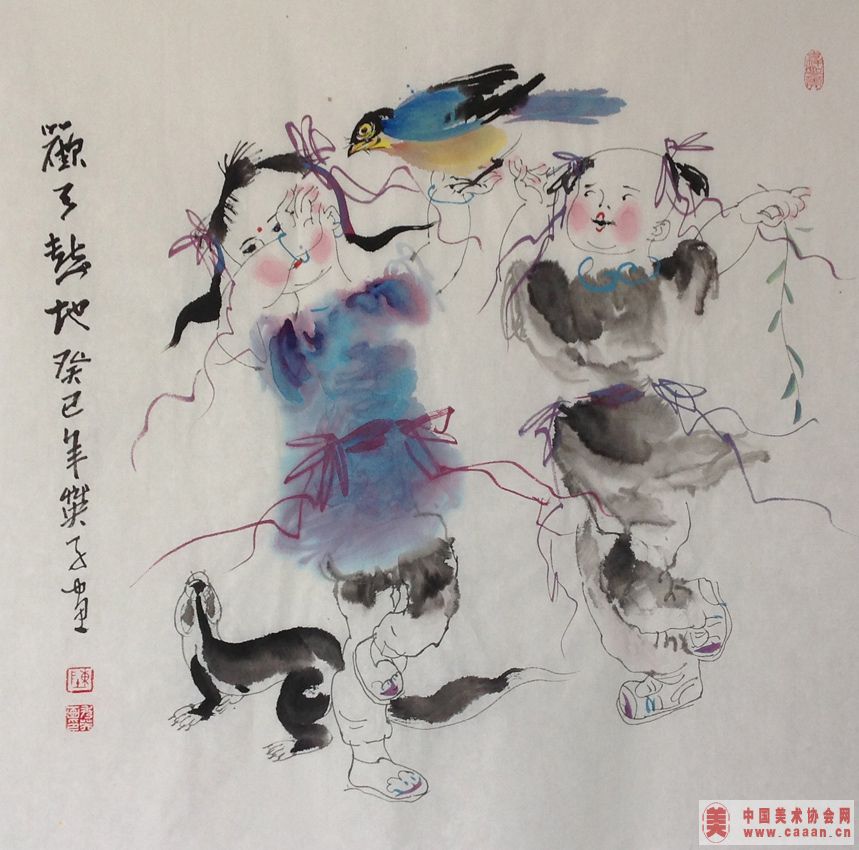 歡天喜地癸巳年子画
陳
中国美术协会网
美
www.caaan.cn